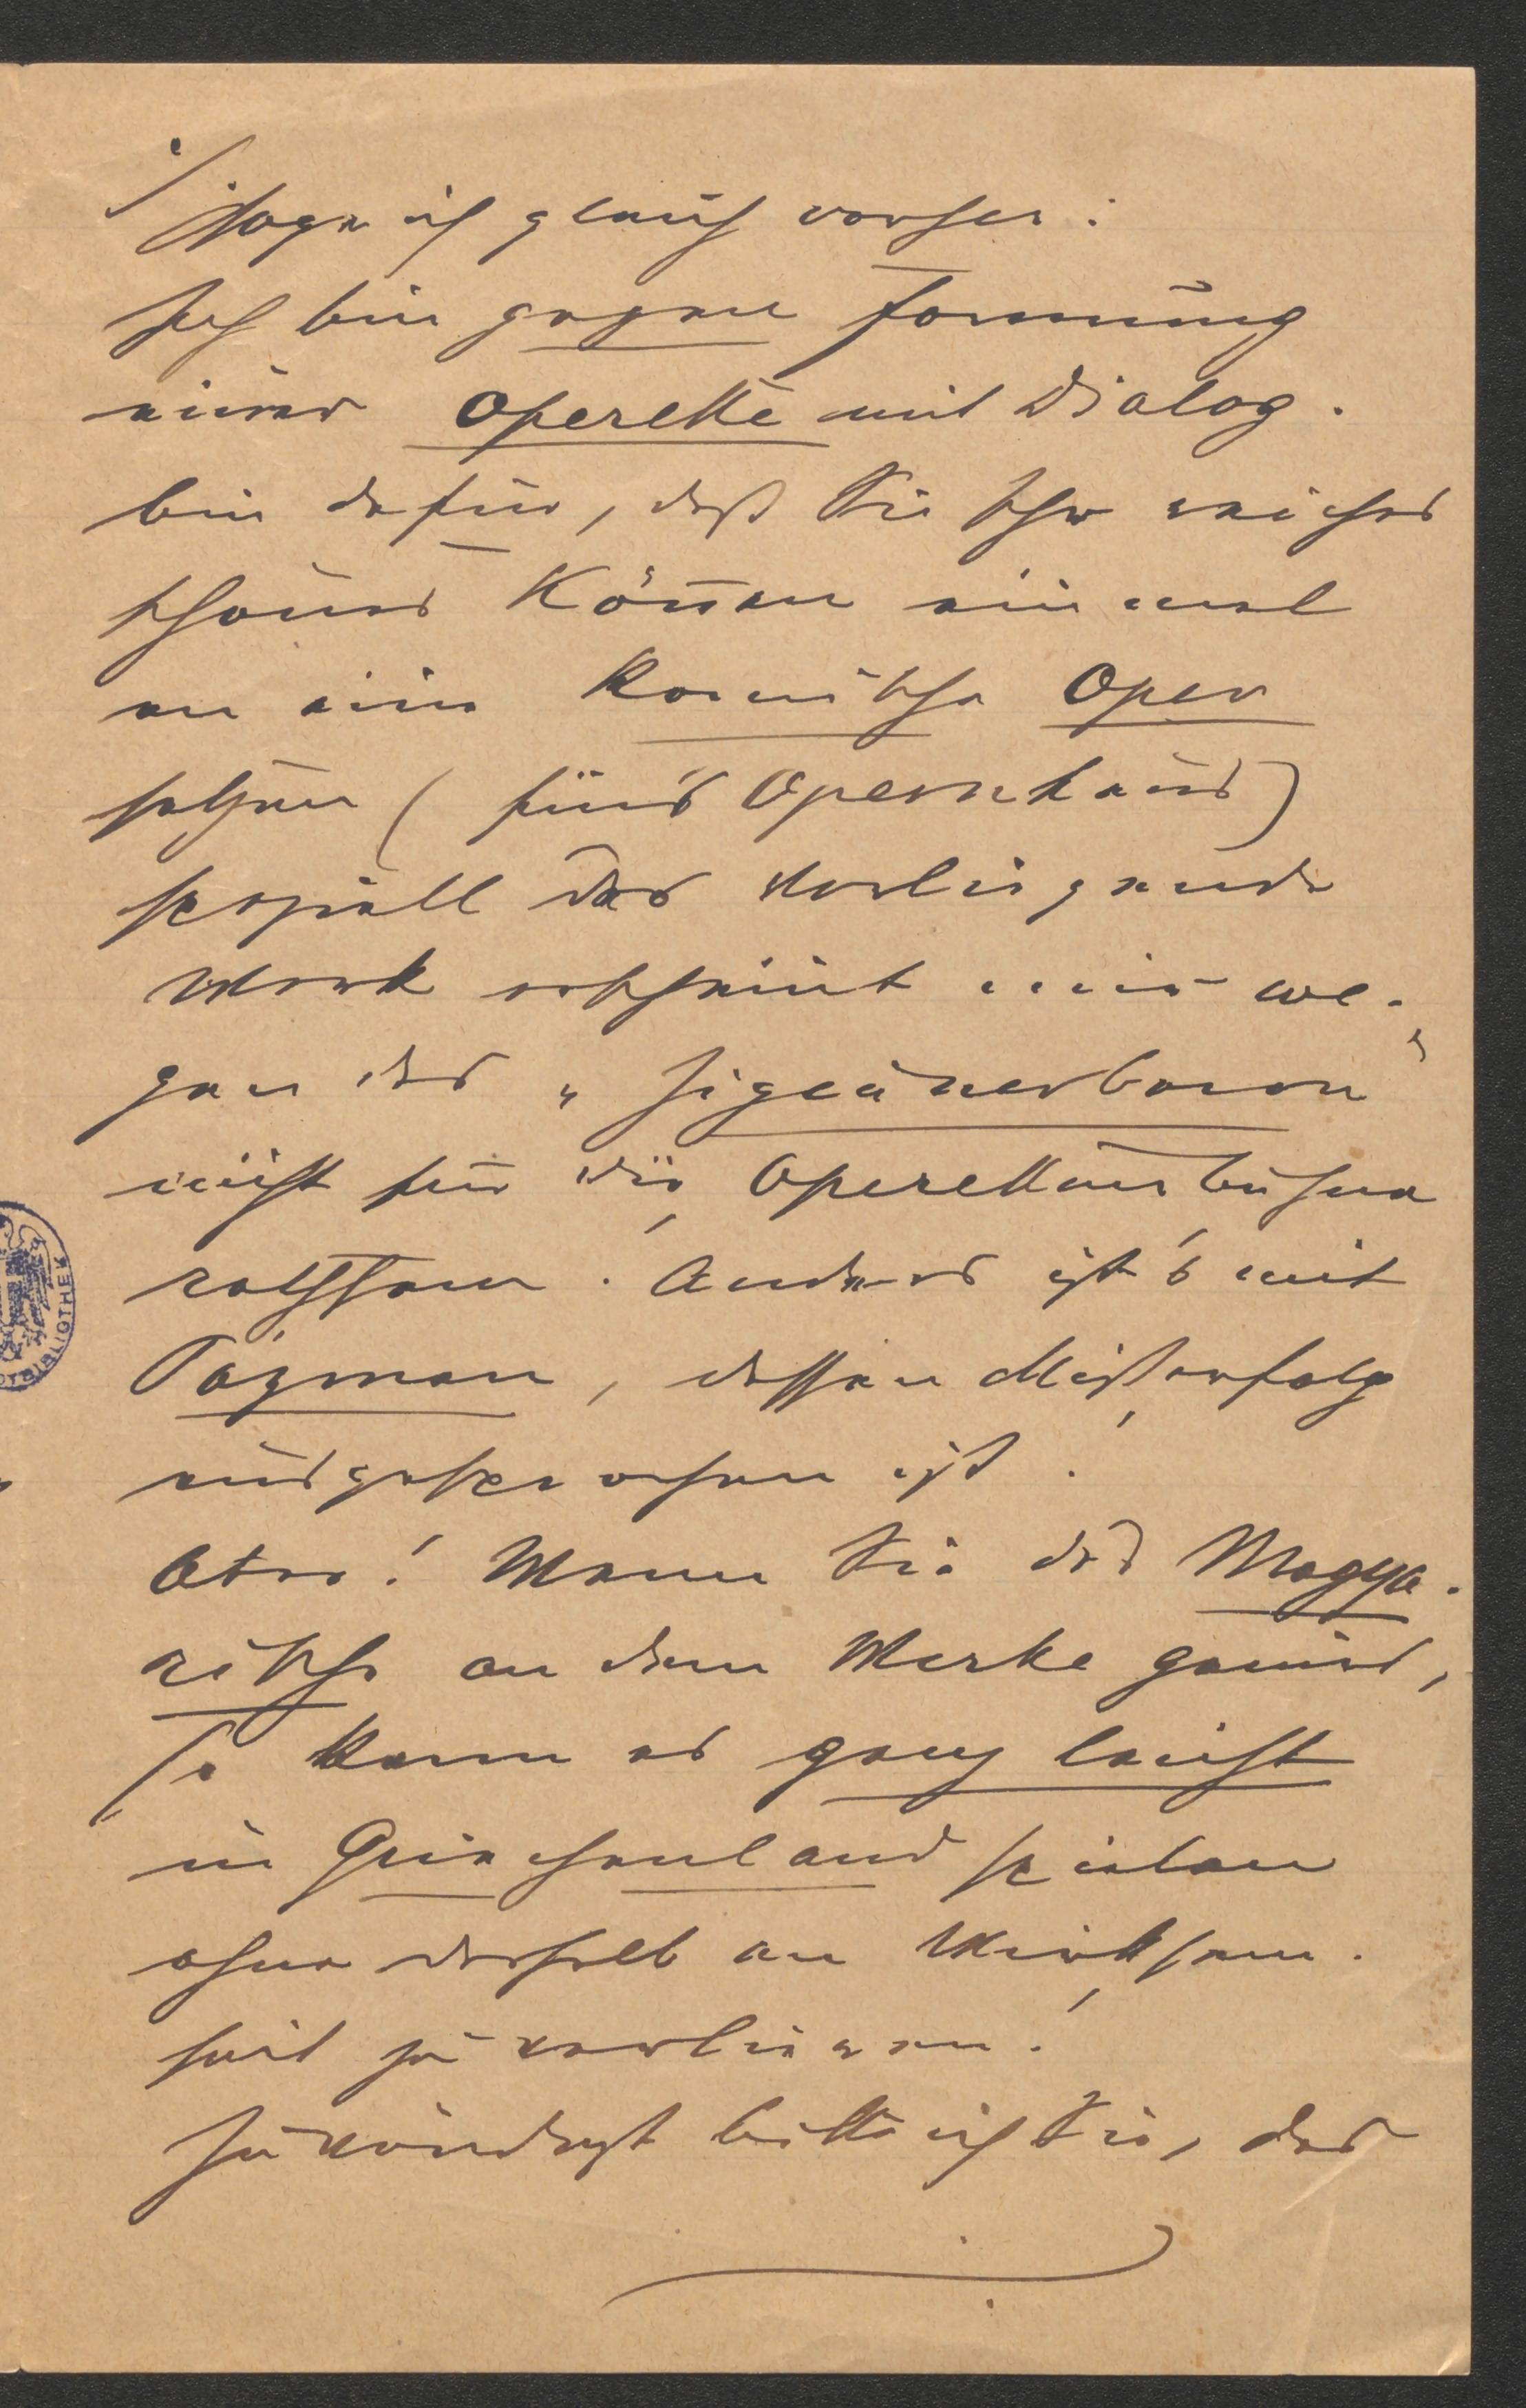 sage ich gleich vorher:
Ich bin gegen Formung
einer Operette mit Dialog.
bin dafür, daß Sie Ihr reiches
schönes Können einmal
an eine komische Oper
setzen (für's Opernhaus)
speziell das vorliegende
Werk erscheint mir we-
gen des „Zigeunerbaron"
nicht für die Operettenbühne
rathsam. Anders ist's mit
Pázman, dessen Mißerfolg
ausgesprochen ist.
Aber! Wenn Sie das Magya-
rische an dem Werke geniert,
so kann es ganz leicht
in Griechenland spielen
ohne deshalb an Wirksam-
keit zu verlieren!
Zuvörderst bitte ich Sie, das
BIBLIOTHEK